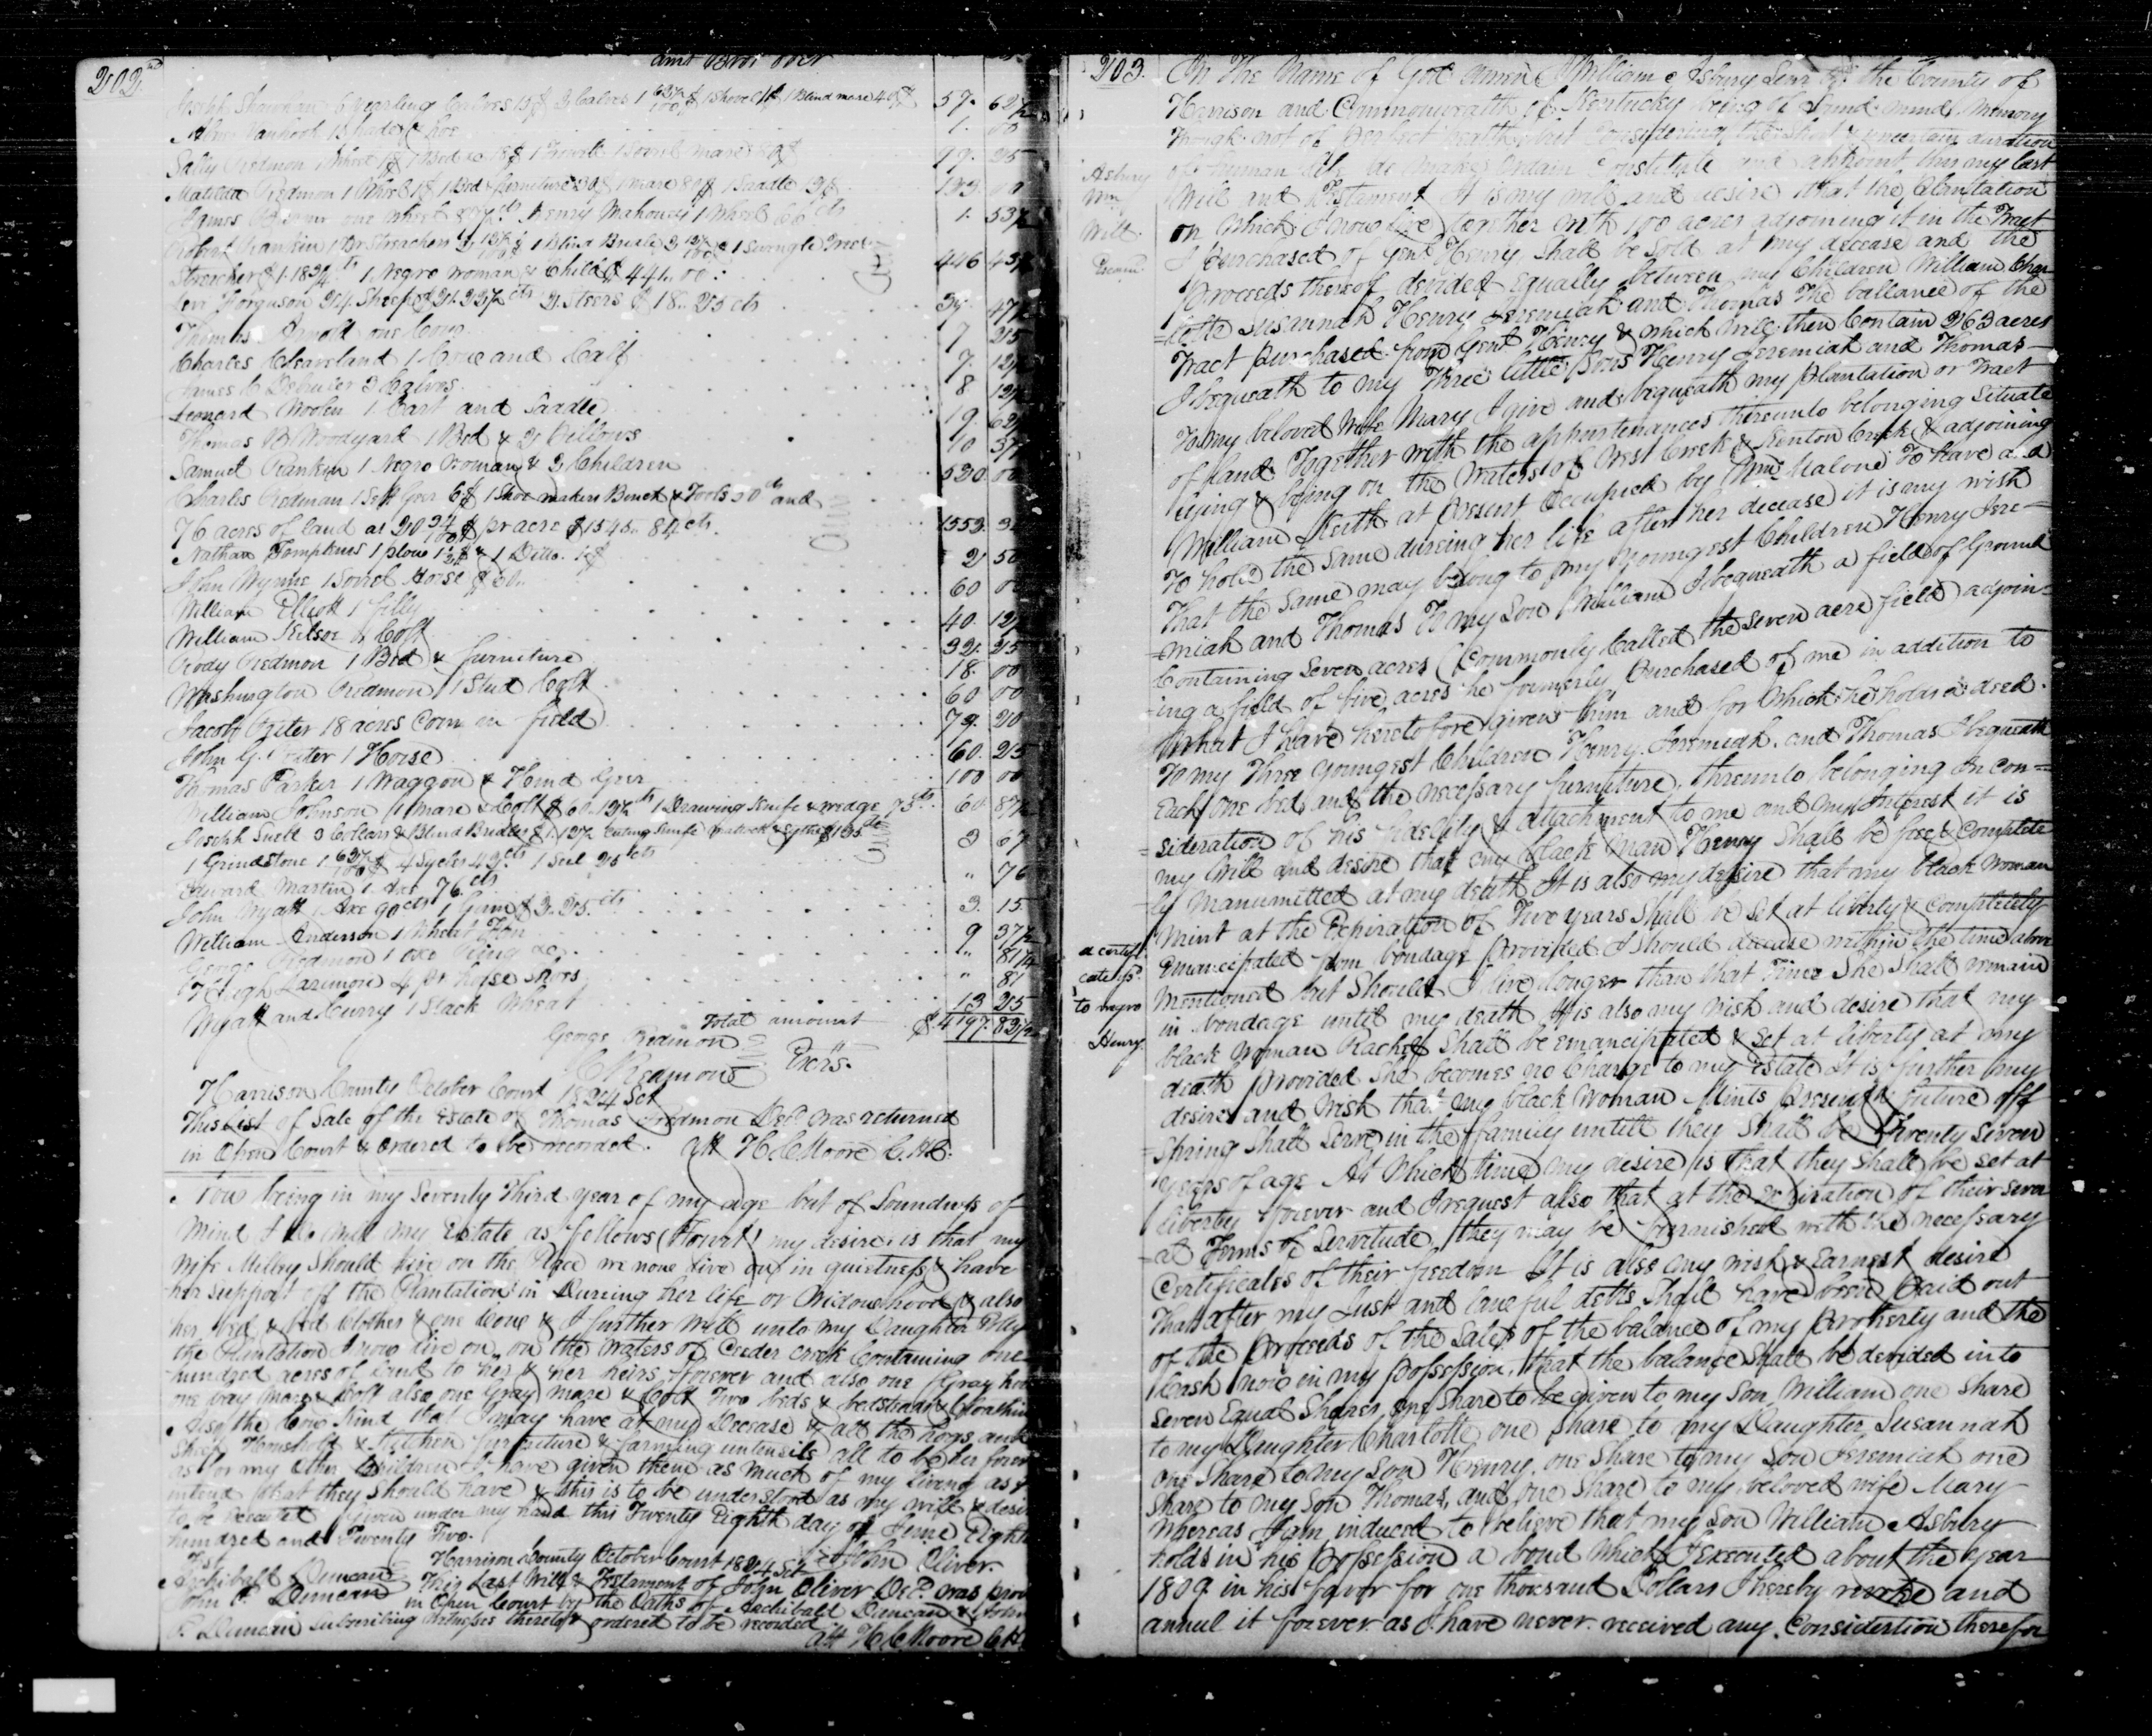 202nd
amt Brot over
Joseph Shawhan 6 yearling Calves 13$ 3 Calves 1 62½/100$ 1 Shovel 1$ 1 Blind mare 40$ 57. 62½
Vanhook 1 Spade & hoe 1. 00
Sally Redmon 1 Wheel 1$ 1 Bed &c 18$ 1 Sorrel mare 80$ 99. 25
Matilda Redmon 1 Wheel 1$ 1 Bed & furniture 30$ 1 mare 80$ 1 Saddle 00
James one wheel 87½ cts Henry Mahoney 1 Wheel 66 cts 1. 53½
Robert Rankin 1 Pr Streachers 1 Blind Bridle 1 Swingle tree
Streacher $1.18¾ cts 1 Negro woman & Child $441.00 : 446 43½
Ferguson 24 Sheep $21.22½ cts 2 Steers $18..25 cts 39. 47½
Thomas Arnold one Cow 7 25
Charles Cleaveland 1 Cow and Calf 7. 12½
James C 3 Calves 8 12½
Leonard Woolen 1 Cart and Saddle 19. 62½
Thomas B Woodyard 1 Bed & 2 Pillows 10 37½
Samuel Rankin 1 Negro woman & 3 Children 530. 00
Charles Redman 1 Sett Geer 6$ 1 Shoe makers Bench & Tools 50 cts and
76 acres of land at 20 34/100$ pr acre $1545.. 84 cts. 1552. 34
Nathan Tompkins 1 plow 1½$ & 1 Ditto. 1$ 2 50
John Wynne 1 Sorrel Horse $60.. 60 00
William Elliott 1 filly 40. 12½
William 1 Colt 32. 25
Rody Redmon 1 Bed & furniture 18. 00
Washington Redmon 1 Stud Colt 60 00
Jacob 18 acres Corn in field 79. 20
John G. 1 Horse 60. 25
Thomas Parker 1 Waggon & Hind Geer 100 00
William Johnson 1 mare & Colt $60..12½ cts 1 Drawing Knife & wedge 75 cts. 60. 87½
Joseph Snell 3 Collars & Blind Bridles $1.12½ Cuting Knife mattock & Sythe $1.35 cts
1 Grindstone 1 62½/100$ 4 Sycles 42 cts 1 25 cts 3 67
Edward Martin 1 Axe 76 cts " 76
John Wyatt 1 Axe 90 cts 1 Gun $2..25 cts 3. 15
William Anderson 1 Wheat Fan 9 37½
George Redmon 1 oxe Ring &c " 81¼
Hugh Larimore 4 pr horse Shoes " 81
Wyatt and Curry 1 Stack Wheat 13 25
Total amount $4197.83½
George Redmon
C Redmon Exors.
Harrison County October Court 1824 Sct
This List of Sale of the Estate of Thomas Redmon Decd. was returned
in Open Court & ordered to be recorded. Att H C Moore C.H.C.
Now being in my Seventy third year of my age but of Soundness of
Mind I do will my Estate as follows (Towit) my desire is that my
Wife Milley Should live on the Place we none live on in quietness & have
her Support off the Plantation in Dureing her life or Widowhood & also
her bed & bed Clothes & one Cow & I further Will unto my Daughter Polly
the Plantation I now live on, on the Waters of Ceeder creek Containing one
hundred acres of land to her & her heirs forever and also one Gray
one bay mare & Colt also one Gray mare & Colt Two beds & bedsteads &
Also the Cow Kind that I may have at my Decease & all the hogs and
Sheep Household & Kitchen furniture & farming untensils all to be her forev
as for my Other Children I have given them as much of my living as I
intend that they should have & this is to be understood as my will & desi
to be Executed given under my hand this Twenty Eighth day of June Eight
hundred and Twenty Two.
Test John Oliver
Archibald Duncan Harrison County October Court 1824 Sct
John P. Duncan This Last Will & Testament of John Oliver Decd. was prov
in Open Court by the Oaths of Archibald Duncan & John
P. Duncan Subscribing Witnesses thereto & ordered to be recorded
att H C Moore C H
203.
Asbury
Wm
Will
a certifi
cate
to negro
Henry
In the Name of God amen I William Asbury Senr of the County of
Harrison and Commonwealth of Kentucky being of Sound mind & Memory
though not of perfect health but Considering the Short & uncertain duration
of human life do make ordain Constitute and appoint this my last
Will and Testament It is my will and desire that the plantation
on which I now live together with 100 acres adjoining it in the Tract
I purchased of Genl Henry Shall be Sold at my decease and the
proceeds thereof devided Equally between my Children William Char
=lotte Susannah Henry Jeremiah and Thomas The ballance of the
Tract purchased from Genl Henry & which will then Contain 263 acres
I bequeath to my Three little Sons Henry Jeremiah and Thomas—
To my beloved Wife Mary I give and bequeath my plantation or Tract
of land Together with the appurtenances thereunto belonging Situate
lying & being on the Waters of West Creek & Kenton Creek & adjoining
William Keith at present Occupied by Wm. Malone To have and
To hold the Same dureing her life after her decease it is my wish
That the Same may belong to my Youngest Children Henry Jere=
=miah and Thomas To my Son William I bequeath a field of Ground
Containing Seven acres (Commonly Called the Seven acre field) adjoin=
ing a field of five acres he formerly Purchased of me in addition to
What I have heretofore given him and for Which he holds a deed.
To my Three Youngest Children Henry. Jeremiah. and Thomas I bequeath
Each One bed and the necessary furniture. thereunto belonging In con=
=sideration of his fidelity & attachment to me and my Interest it is
my Will and desire that my black Man Henry Shall be free & Complete
ly Manumitted at my death It is also my desire that my black Woman
Mint at the Expiration of Two years Shall be Set at liberty & Completely
Emancipated from bondage provided I Should decease within the time above
Mentioned but Should I live longer than that Time She Shall remain
in bondage until my death It is also my wish and desire that my
black Woman Rachel Shall be emancipated & Set at liberty at my
death provided She becomes no Charge to my Estate It is further my
desire and wish that my black Woman Mints present & future off
=Spring Shall Serve in the family untill they Shall be Twenty Seven
Years of age At Which time my desire is that they Shall be set at
liberty forever and I request also that at the Expiration of their sever
=al Terms of Servitude they may be furnished with the necessary
Certificates of their freedom It is also my wish & Earnest desire
That after my Just and lawful debts Shall have been Paid out
of the Proceeds of the Sale of the balance of my Property and the
Cash now in my Possession, that the balance Shall be devided into
Seven Equal Shares, one Share to be given to my Son William one Share
to my Daughter Charlotte one Share to my Daughter Susannah
one Share to my Son Henry. one Share to my Son Jeremiah one
Share to my Son Thomas, and one Share to my beloved wife Mary
Whereas I am induced to believe that my Son William Asbury
holds in his Possession a bond which I executed about the Year
1809 in his favor for one thousand Dollars I hereby revoke and
annul it forever as I have never received any Consideration therefor